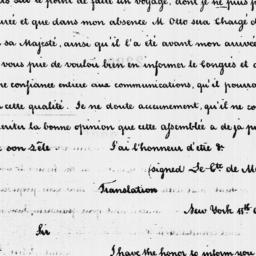 sur le point de faire un voyage, dont je ne puis p
urée et que dans mon absence M. Otto sera Chargé d
sa Majesté, ainsi qu'il l'a été avant mon arrivée
vous prie de vouloir bien en informer le Congrès et d
ne confiance entiere aux communications, qu'il pourra
cette qualité. Je ne doute aucunement, qu'il ne co
eriter la bonne opinion que cette assemblée a de ja p
son Zêle J'ai l'honneur d'etre &
(signed Le Cte de M
Translation
New York 11th
Sir
I have the honor to inform you